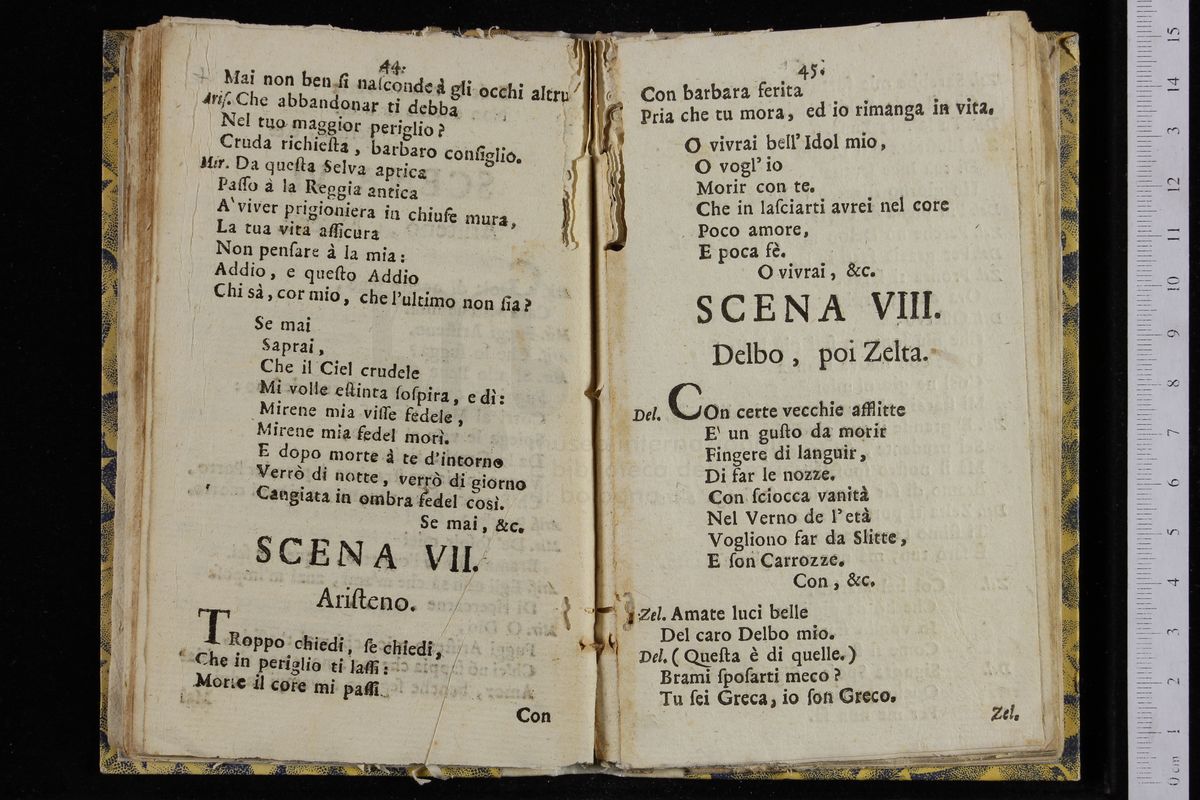 44.
Mai non ben ſi naſconde à gli occhi altru
Ariſ. Che abbandonar ti debba
Nel tuo maggior periglio?
Cruda richieſta, barbaro conſiglio.
Mir. Da queſta Selva aprica
Paſſo à la Reggia antica
A' viver prigioniera in chiuſe mura,
La tua vita aſſicura
Non penſare à la mia:
Addio, e queſto Addio
Chi sà, cor mio, che l'ultimo non ſia?
Se mai
Saprai,
Che il Ciel crudele
Mi volle eſtinta ſoſpira, e dì:
Mirene mia viſſe fedele,
Mirene mia fedel morì.
E dopo morte à te d'intorno
Verrò di notte, verrò di giorno
Cangiata in ombra fedel così.
Se mai, &c.
SCENA VII.
Ariſteno.
TRoppo chiedi, ſe chiedi,
Che in periglio ti laſſi:
Morte il core mi paſſi
Con
45.
Con barbara ferita
Pria che tu mora, ed io rimanga in vita.
O vivrai bell' Idol mio,
O vogl' io
Morir con te.
Che in laſciarti avrei nel core
Poco amore,
E poca fè.
O vivrai, &c.
SCENA VIII.
Delbo, poi Zelta.
Del. COn certe vecchie afflitte
E' un guſto da morir
Fingere di languir,
Di far le nozze.
Con ſciocca vanità
Nel Verno de l'età
Vogliono far da Slitte,
E ſon Carrozze.
Con, &c.
Zel. Amate luci belle
Del caro Delbo mio.
Del. (Queſta è di quelle.)
Brami ſpoſarti meco?
Tu ſei Greca, io ſon Greco.
Zel.